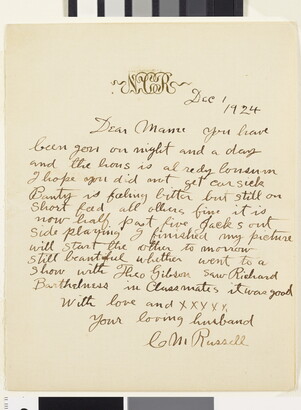 NCR
Dec 1
1924
Dear Mame you have
been gon on night and a day
and the hous is al redy lonsum
I hope you did not get car sick
Banty is feeling bitter but still on
short feed all others fine it is
now half past five Jack's out
side playing I finished my picture
will start the other to morrow
still beautiful whether went to a
show with Theo Gibson saw Richard
Barthelness in Classmates it was good
With love and XXXXX
Your loving husband
C M Russell